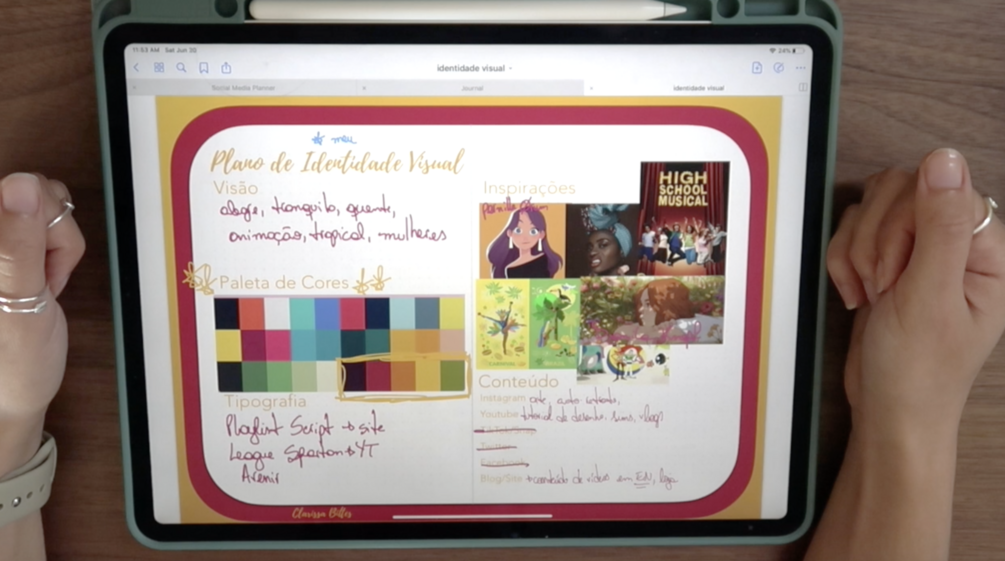 11:53 AM Sat Jun 20
24%
identidade visual
Social Media Planner
Journal
identidade visual
meu
Plano de Identidade Visual
Visão
alegre, tranquilo, quente,
animação, tropical, mulheres
Paleta de Cores
Tipografia
Playlist Script → site
League Spartan → YT
Avenir
Inspirações
HIGH
SCHOOL
MUSICAL
Conteúdo
Instagram arte,
Youtube tutorial de desenho, sims, vlogs
Twitter
Facebook
Blog/Site → conteúdo de vídeo em EN, loja
Clarissa Bitter